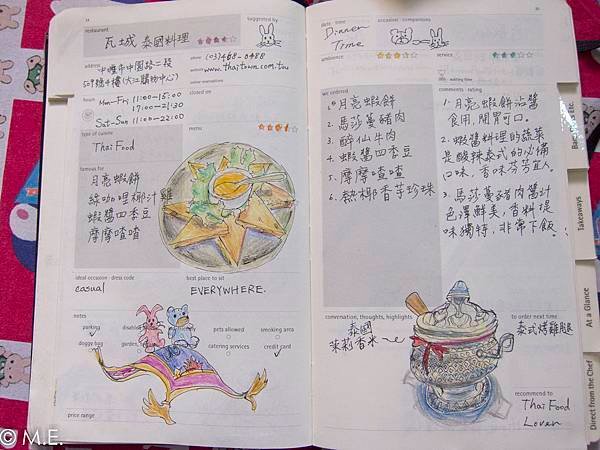 restaurant
瓦城 泰國料理
suggested by
address
中壢市中園路二段
509號4樓(大江購物中心)
phone (03)468-0488
website www.thaitown.com.tw
price reservations
hours
Mon-Fri 11:00-15:00
17:00-21:30
Sat-Sun 11:00-22:00
closed on
type of cuisine
Thai Food
menu
famous for
月亮蝦餅
綠咖哩椰汁雞
蝦醬四季豆
摩摩喳喳
ideal occasion · dress code
casual
best place to sit
EVERYWHERE.
notes
parking
pets allowed
smoking area
doggy bag
garden
catering services
credit card
price range
date · time
Dinner
Time
occasion · companions
ambience
service
waiting time
we ordered
1. 月亮蝦餅
2. 馬莎蔓豬肉
3. 醉仙牛肉
4. 蝦醬四季豆
5. 摩摩喳喳
6. 熱椰香芋珍珠
comments · rating
1. 月亮蝦餅沾醬
食用,開胃可口。
2. 蝦醬料理的蔬菜
是酸辣泰式的必備
口味,香味芬芳宜人。
3. 馬莎蔓豬肉醬汁
色澤鮮美,香料提
味獨特,非常下飯。
conversation, thoughts, highlights
泰國
茉莉香米
to order next time
泰式烤雞腿
recommend to
Thai Food
Lover
Takeaways
At a Glance
Direct from the Chef
© M.E.